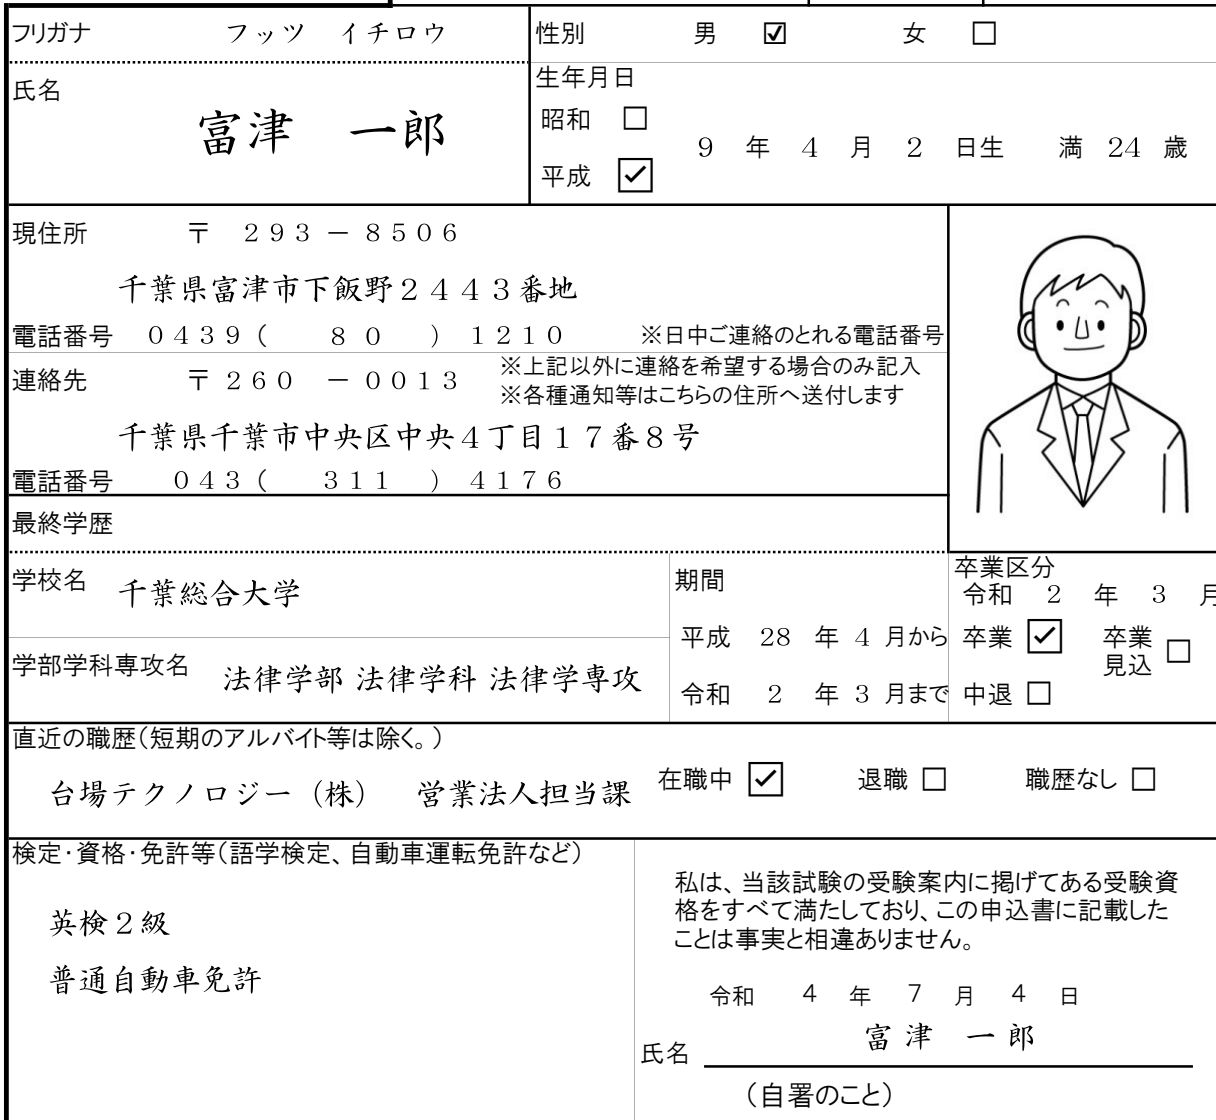 フリガナ フッツ イチロウ 性別 男 ☑ 女 □
氏名 富津 一郎
生年月日
昭和 □
9 年 4 月 2 日生 満 24 歳
平成 ☑
現住所 〒 293 － 8506
千葉県富津市下飯野２４４３番地
電話番号 0439( 80 ) 1210 ※日中ご連絡のとれる電話番号
連絡先 〒 260 － 0013
※上記以外に連絡を希望する場合のみ記入
※各種通知等はこちらの住所へ送付します
千葉県千葉市中央区中央４丁目１７番８号
電話番号 043( 311 ) 4176
最終学歴
学校名 千葉総合大学
学部学科専攻名 法律学部 法律学科 法律学専攻
期間
平成 28 年 4 月から
令和 2 年 3 月まで
卒業区分
令和 2 年 3 月
卒業 ☑ 卒業見込 □
中退 □
直近の職歴（短期のアルバイト等は除く。）
台場テクノロジー（株） 営業法人担当課 在職中 ☑ 退職 □ 職歴なし □
検定・資格・免許等（語学検定、自動車運転免許など）
英検２級
普通自動車免許
私は、当該試験の受験案内に掲げてある受験資
格をすべて満たしており、この申込書に記載した
ことは事実と相違ありません。
令和 4 年 7 月 4 日
氏名 富津 一郎
（自署のこと）